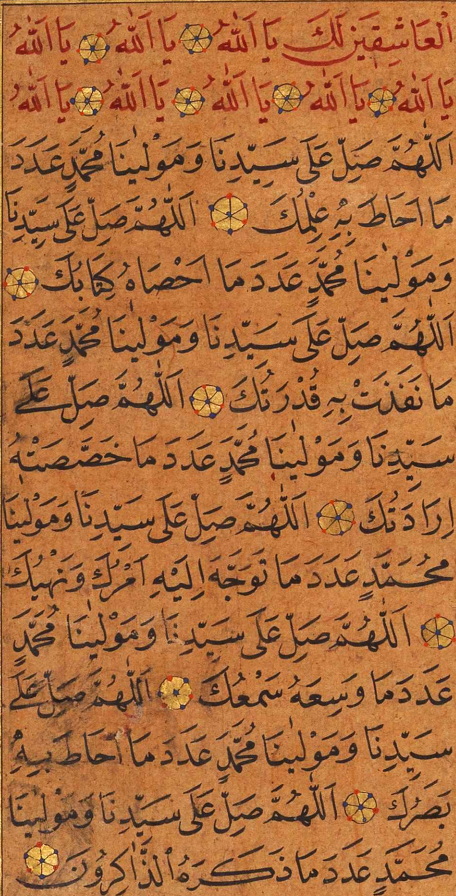 الْعَاشِقِينَ لَكَ يَا اَللهُ يَا اَللهُ يَا اَللهُ
يَا اَللهُ يَا اَللهُ يَا اَللهُ يَا اَللهُ يَا اَللهُ
اَللّٰهُمَّ صَلِّ عَلَى سَيِّدِنَا وَمَوْلٰينَا مُحَمَّدٍ عَدَدَ
مَا اَحَاطَ بِهِ عِلْمُكَ اَللّٰهُمَّ صَلِّ عَلَى سَيِّدِنَا
وَمَوْلٰينَا مُحَمَّدٍ عَدَدَ مَا اَحْصَاهُ كِتَابُكَ
اَللّٰهُمَّ صَلِّ عَلَى سَيِّدِنَا وَمَوْلٰينَا مُحَمَّدٍ عَدَدَ
مَا نَفَذَتْ بِهِ قُدْرَتُكَ اَللّٰهُمَّ صَلِّ عَلَى
سَيِّدِنَا وَمَوْلٰينَا مُحَمَّدٍ عَدَدَ مَا خَصَّصَتْهُ
اِرَادَتُكَ اَللّٰهُمَّ صَلِّ عَلَى سَيِّدِنَا وَمَوْلٰينَا
مُحَمَّدٍ عَدَدَ مَا تَوَجَّهَ اِلَيْهِ اَمْرُكَ وَنَهْيُكَ
اَللّٰهُمَّ صَلِّ عَلَى سَيِّدِنَا وَمَوْلٰينَا مُحَمَّدٍ
عَدَدَ مَا وَسِعَهُ سَمْعُكَ اَللّٰهُمَّ صَلِّ عَلَى
سَيِّدِنَا وَمَوْلٰينَا مُحَمَّدٍ عَدَدَ مَا اَحَاطَ بِهِ
بَصَرُكَ اَللّٰهُمَّ صَلِّ عَلَى سَيِّدِنَا وَمَوْلٰينَا
مُحَمَّدٍ عَدَدَ مَا ذَكَرَهُ الذَّاكِرُونَ